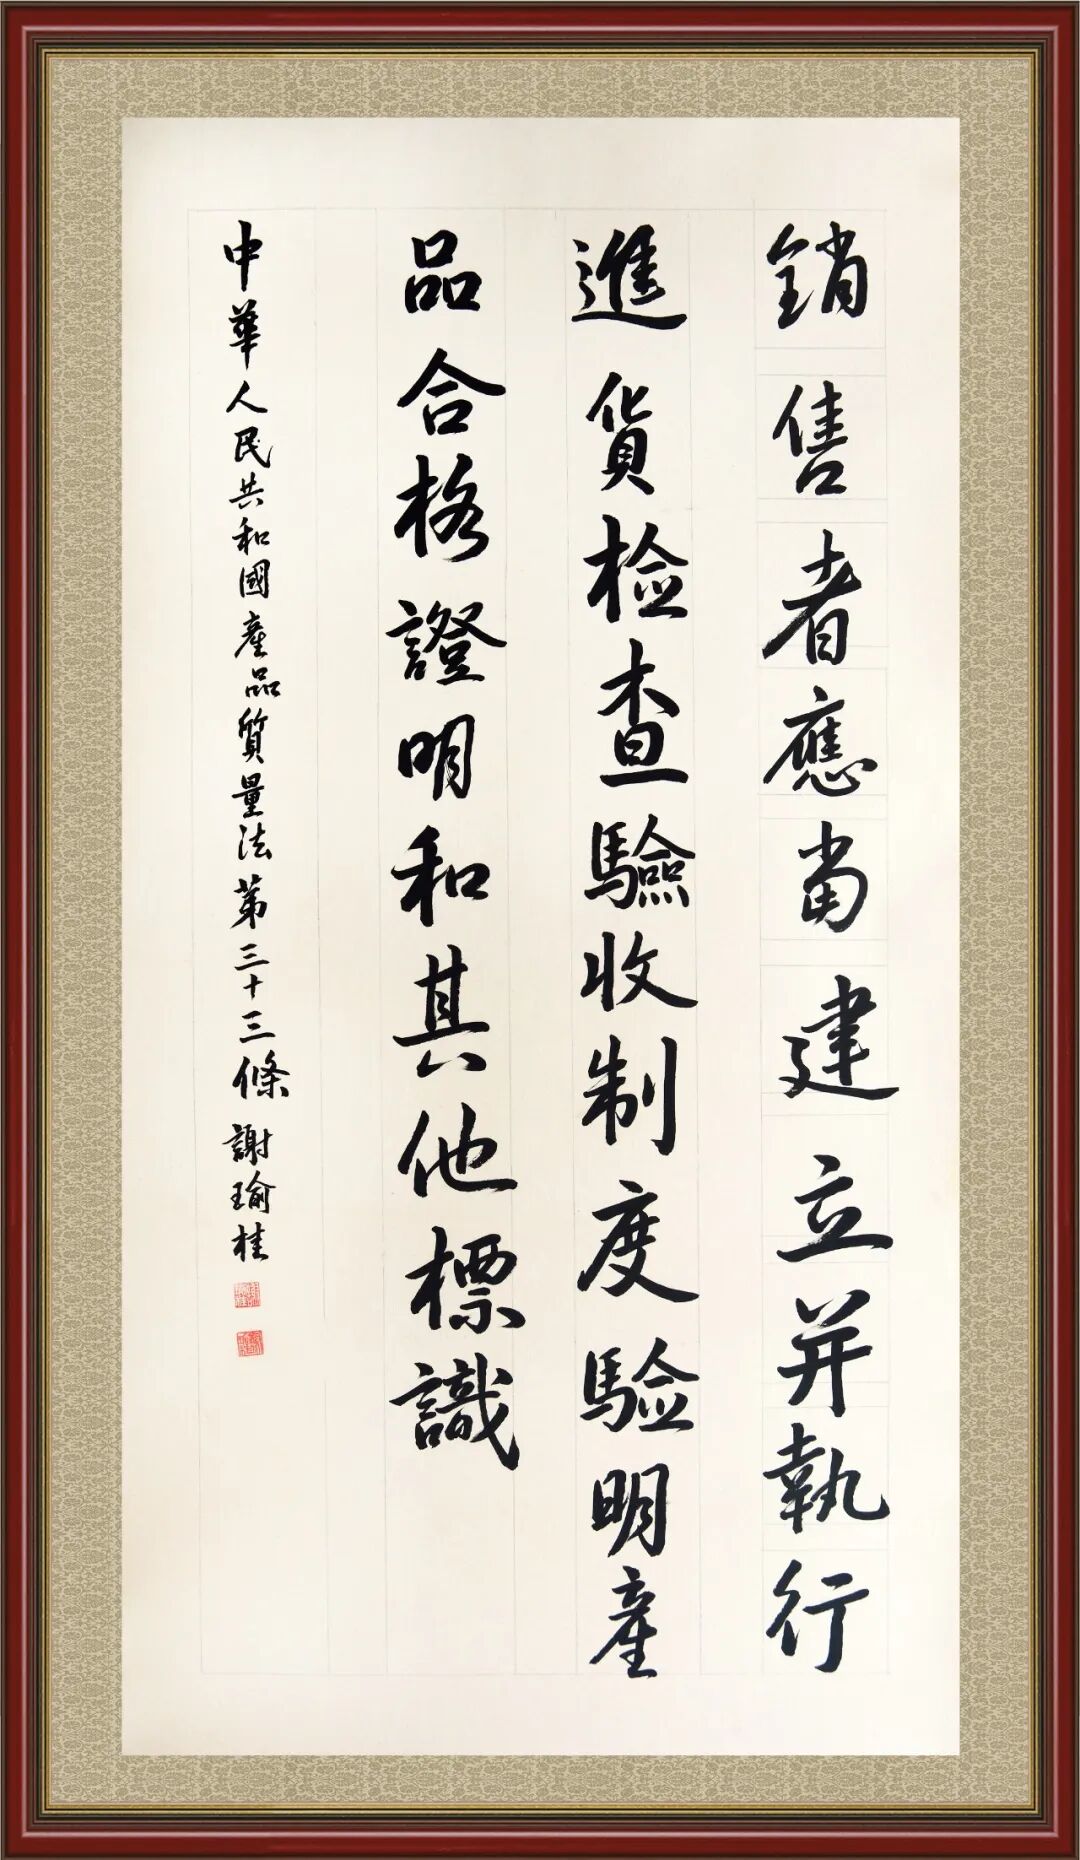 銷售者應當建立并執行
進貨检查驗收制度验明產
品合格證明和其他標識
中華人民共和國產品質量法第三十三條 謝瑜桂